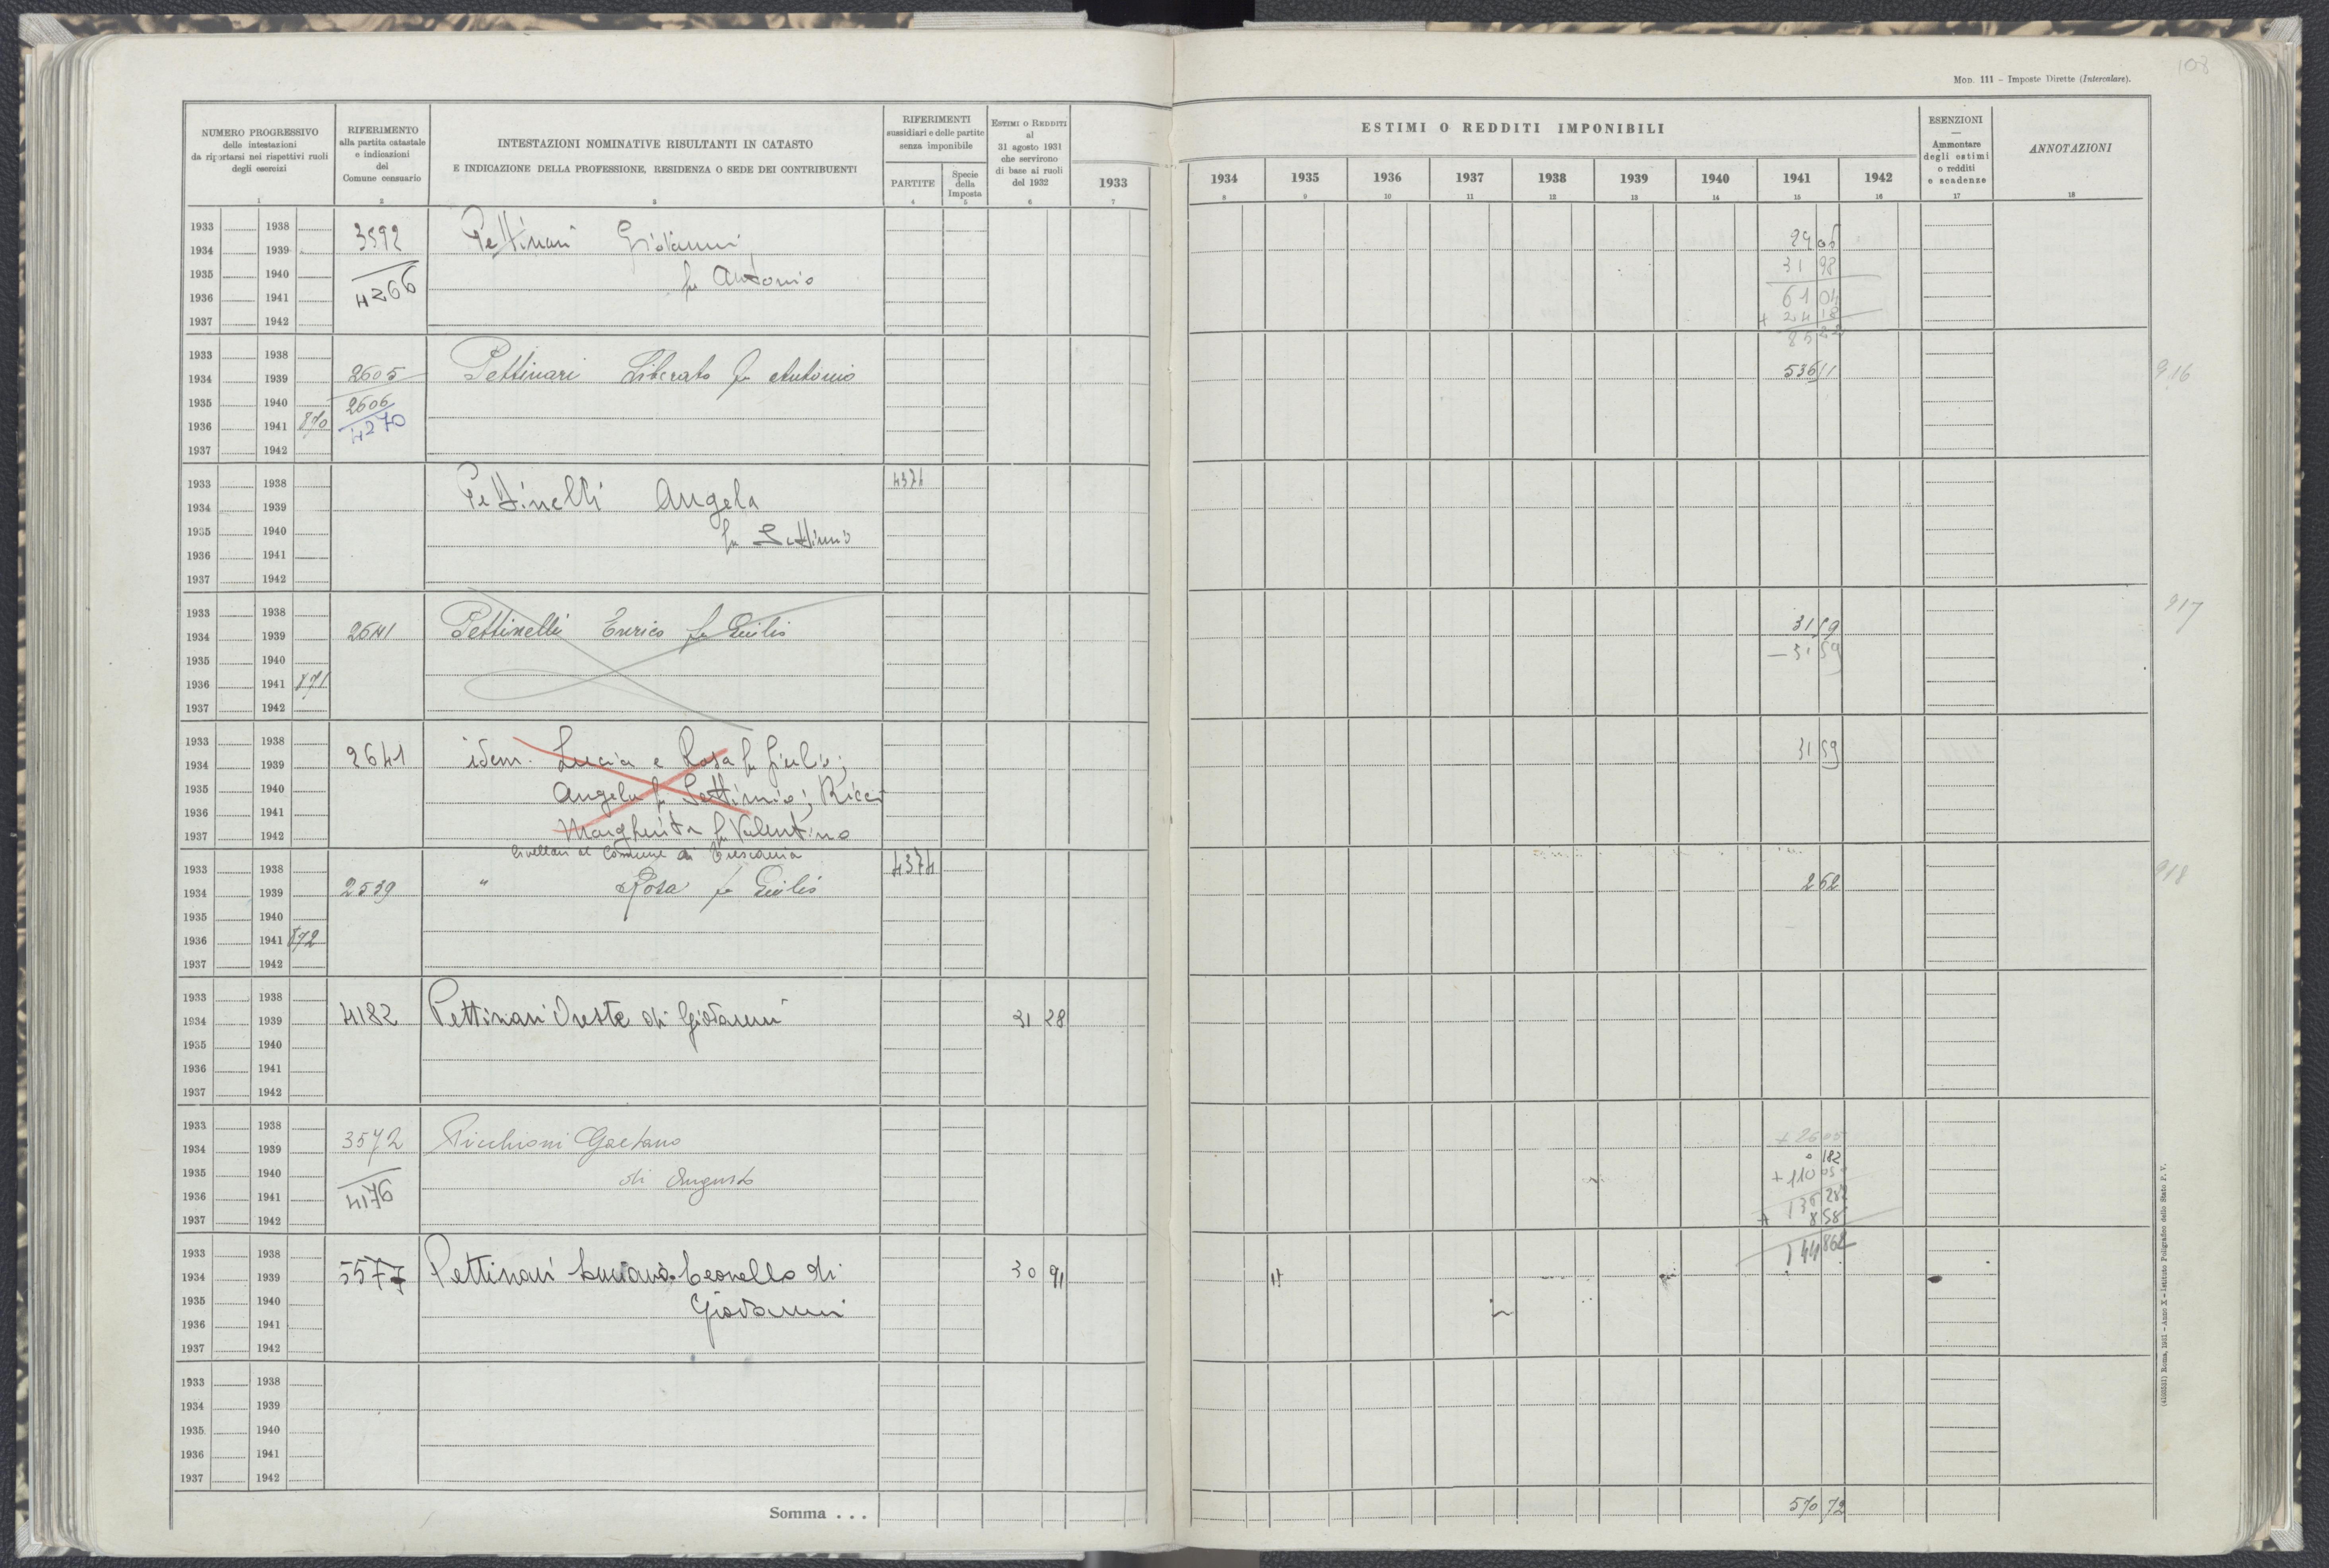 108
Mod. 111 - Imposte Dirette (Intercalare).
NUMERO PROGRESSIVO
delle intestazioni
da riportarsi nei rispettivi ruoli
degli esercizi
RIFERIMENTO
alla partita catastale
e indicazioni
del
Comune censuario
INTESTAZIONI NOMINATIVE RISULTANTI IN CATASTO
E INDICAZIONE DELLA PROFESSIONE, RESIDENZA O SEDE DEI CONTRIBUENTI
RIFERIMENTI
sussidiari e delle partite
senza imponibile
PARTITE
Specie
della
Imposta
ESTIMI O REDDITI
al
31 agosto 1931
che servirono
di base ai ruoli
del 1932
ESTIMI O REDDITI IMPONIBILI
1933 1934 1935 1936 1937 1938 1939 1940 1941 1942
ESENZIONI
—
Ammontare
degli estimi
o redditi
e scadenze
ANNOTAZIONI
1 2 3 4 5 6 7 8 9 10 11 12 13 14 15 16 17 18
1933 1938
1934 1939 3592 Pettinari Giovanni 29 06
1935 1940 fu Antonio 31 98
1936 1941 4266 61 04
1937 1942 + 24 18
85 22
1933 1938
1934 1939 2605 Pettinari Liberato fu Antonio 536 11 916
1935 1940 2606
1936 1941 870 4270
1937 1942
1933 1938 4374
1934 1939 Pettinelli Angela
1935 1940 fu Settimio
1936 1941
1937 1942
1933 1938 917
1934 1939 2641 Pettinelli Enrico fu Giulio 31 59
1935 1940 — 31 59
1936 1941 871
1937 1942
1933 1938
1934 1939 2641 idem. Lucia e Rosa fu Giulio; 31 59
1935 1940 Angela fu Settimio; Ricci
1936 1941
1937 1942 Margherita fu Valentino
livellari al Comune di
1933 1938 4374
1934 1939 2539 " Rosa fu Giulio 2 62 918
1935 1940
1936 1941 872
1937 1942
1933 1938
1934 1939 4182 Pettinari Oreste di Giovanni 31 28
1935 1940
1936 1941
1937 1942
1933 1938
1934 1939 3572 Picchioni Gaetano + 26 05
1935 1940 di Augusto 0 182
1936 1941 4176 + 110 05
1937 1942 136 282
+ 8 58
1933 1938 144 862
1934 1939 5577 Pettinari Luciano Leonello di 30 91
1935 1940 Giovanni
1936 1941
1937 1942
1933 1938
1934 1939
1935 1940
1936 1941
1937 1942
Somma . . . 570 72
Roma, 1931 - Anno X - Istituto Poligrafico dello Stato P. V.